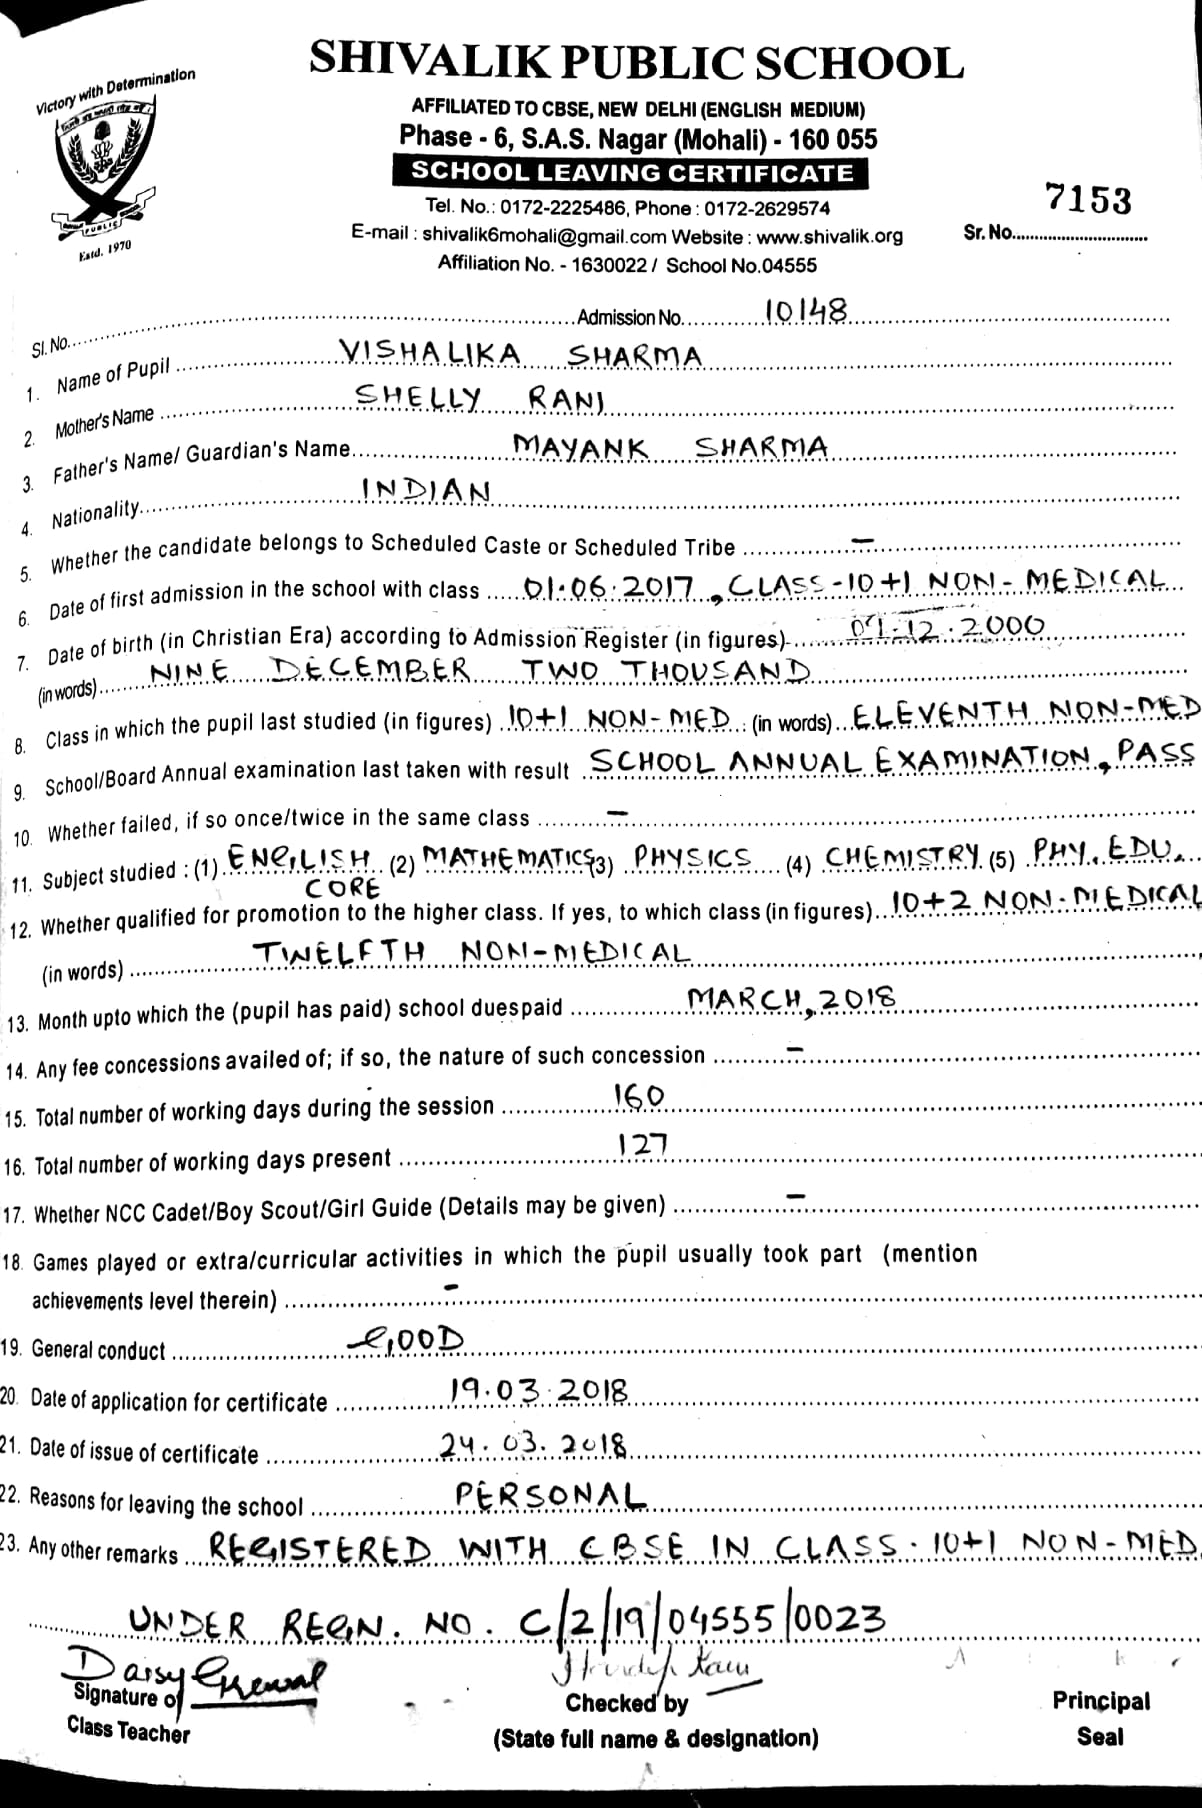 Victory with Determination
PUBLIC
Estd. 1970
SHIVALIK PUBLIC SCHOOL
AFFILIATED TO CBSE, NEW DELHI (ENGLISH MEDIUM)
Phase - 6, S.A.S. Nagar (Mohali) - 160 055
SCHOOL LEAVING CERTIFICATE
Tel. No.: 0172-2225486, Phone : 0172-2629574
E-mail : shivalik6mohali@gmail.com Website : www.shivalik.org
Affiliation No. - 1630022 / School No.04555
7153
Sr. No.
Sl. No. Admission No. 10148
1. Name of Pupil VISHALIKA SHARMA
2. Mother's Name SHELLY RANI
3. Father's Name/ Guardian's Name MAYANK SHARMA
4. Nationality INDIAN
5. Whether the candidate belongs to Scheduled Caste or Scheduled Tribe –
6. Date of first admission in the school with class 01.06.2017, CLASS-10+1 NON-MEDICAL
7. Date of birth (in Christian Era) according to Admission Register (in figures) 09.12.2000
(in words) NINE DECEMBER TWO THOUSAND
8. Class in which the pupil last studied (in figures) 10+1 NON-MED (in words) ELEVENTH NON-MED
9. School/Board Annual examination last taken with result SCHOOL ANNUAL EXAMINATION, PASS
10. Whether failed, if so once/twice in the same class –
11. Subject studied : (1) ENGLISH CORE (2) MATHEMATICS (3) PHYSICS (4) CHEMISTRY (5) PHY. EDU.
12. Whether qualified for promotion to the higher class. If yes, to which class (in figures) 10+2 NON-MEDICAL
(in words) TWELFTH NON-MEDICAL
13. Month upto which the (pupil has paid) school duespaid MARCH, 2018
14. Any fee concessions availed of; if so, the nature of such concession –
15. Total number of working days during the session 160
16. Total number of working days present 127
17. Whether NCC Cadet/Boy Scout/Girl Guide (Details may be given) –
18. Games played or extra/curricular activities in which the pupil usually took part (mention
achievements level therein) –
19. General conduct GOOD
20. Date of application for certificate 19.03.2018
21. Date of issue of certificate 24.03.2018
22. Reasons for leaving the school PERSONAL
23. Any other remarks REGISTERED WITH CBSE IN CLASS. 10+1 NON-MED.
UNDER REGN. NO. C/2/19/04555/0023
Daisy Grewal Kaur
Signature of Checked by Principal
Class Teacher (State full name & designation) Seal